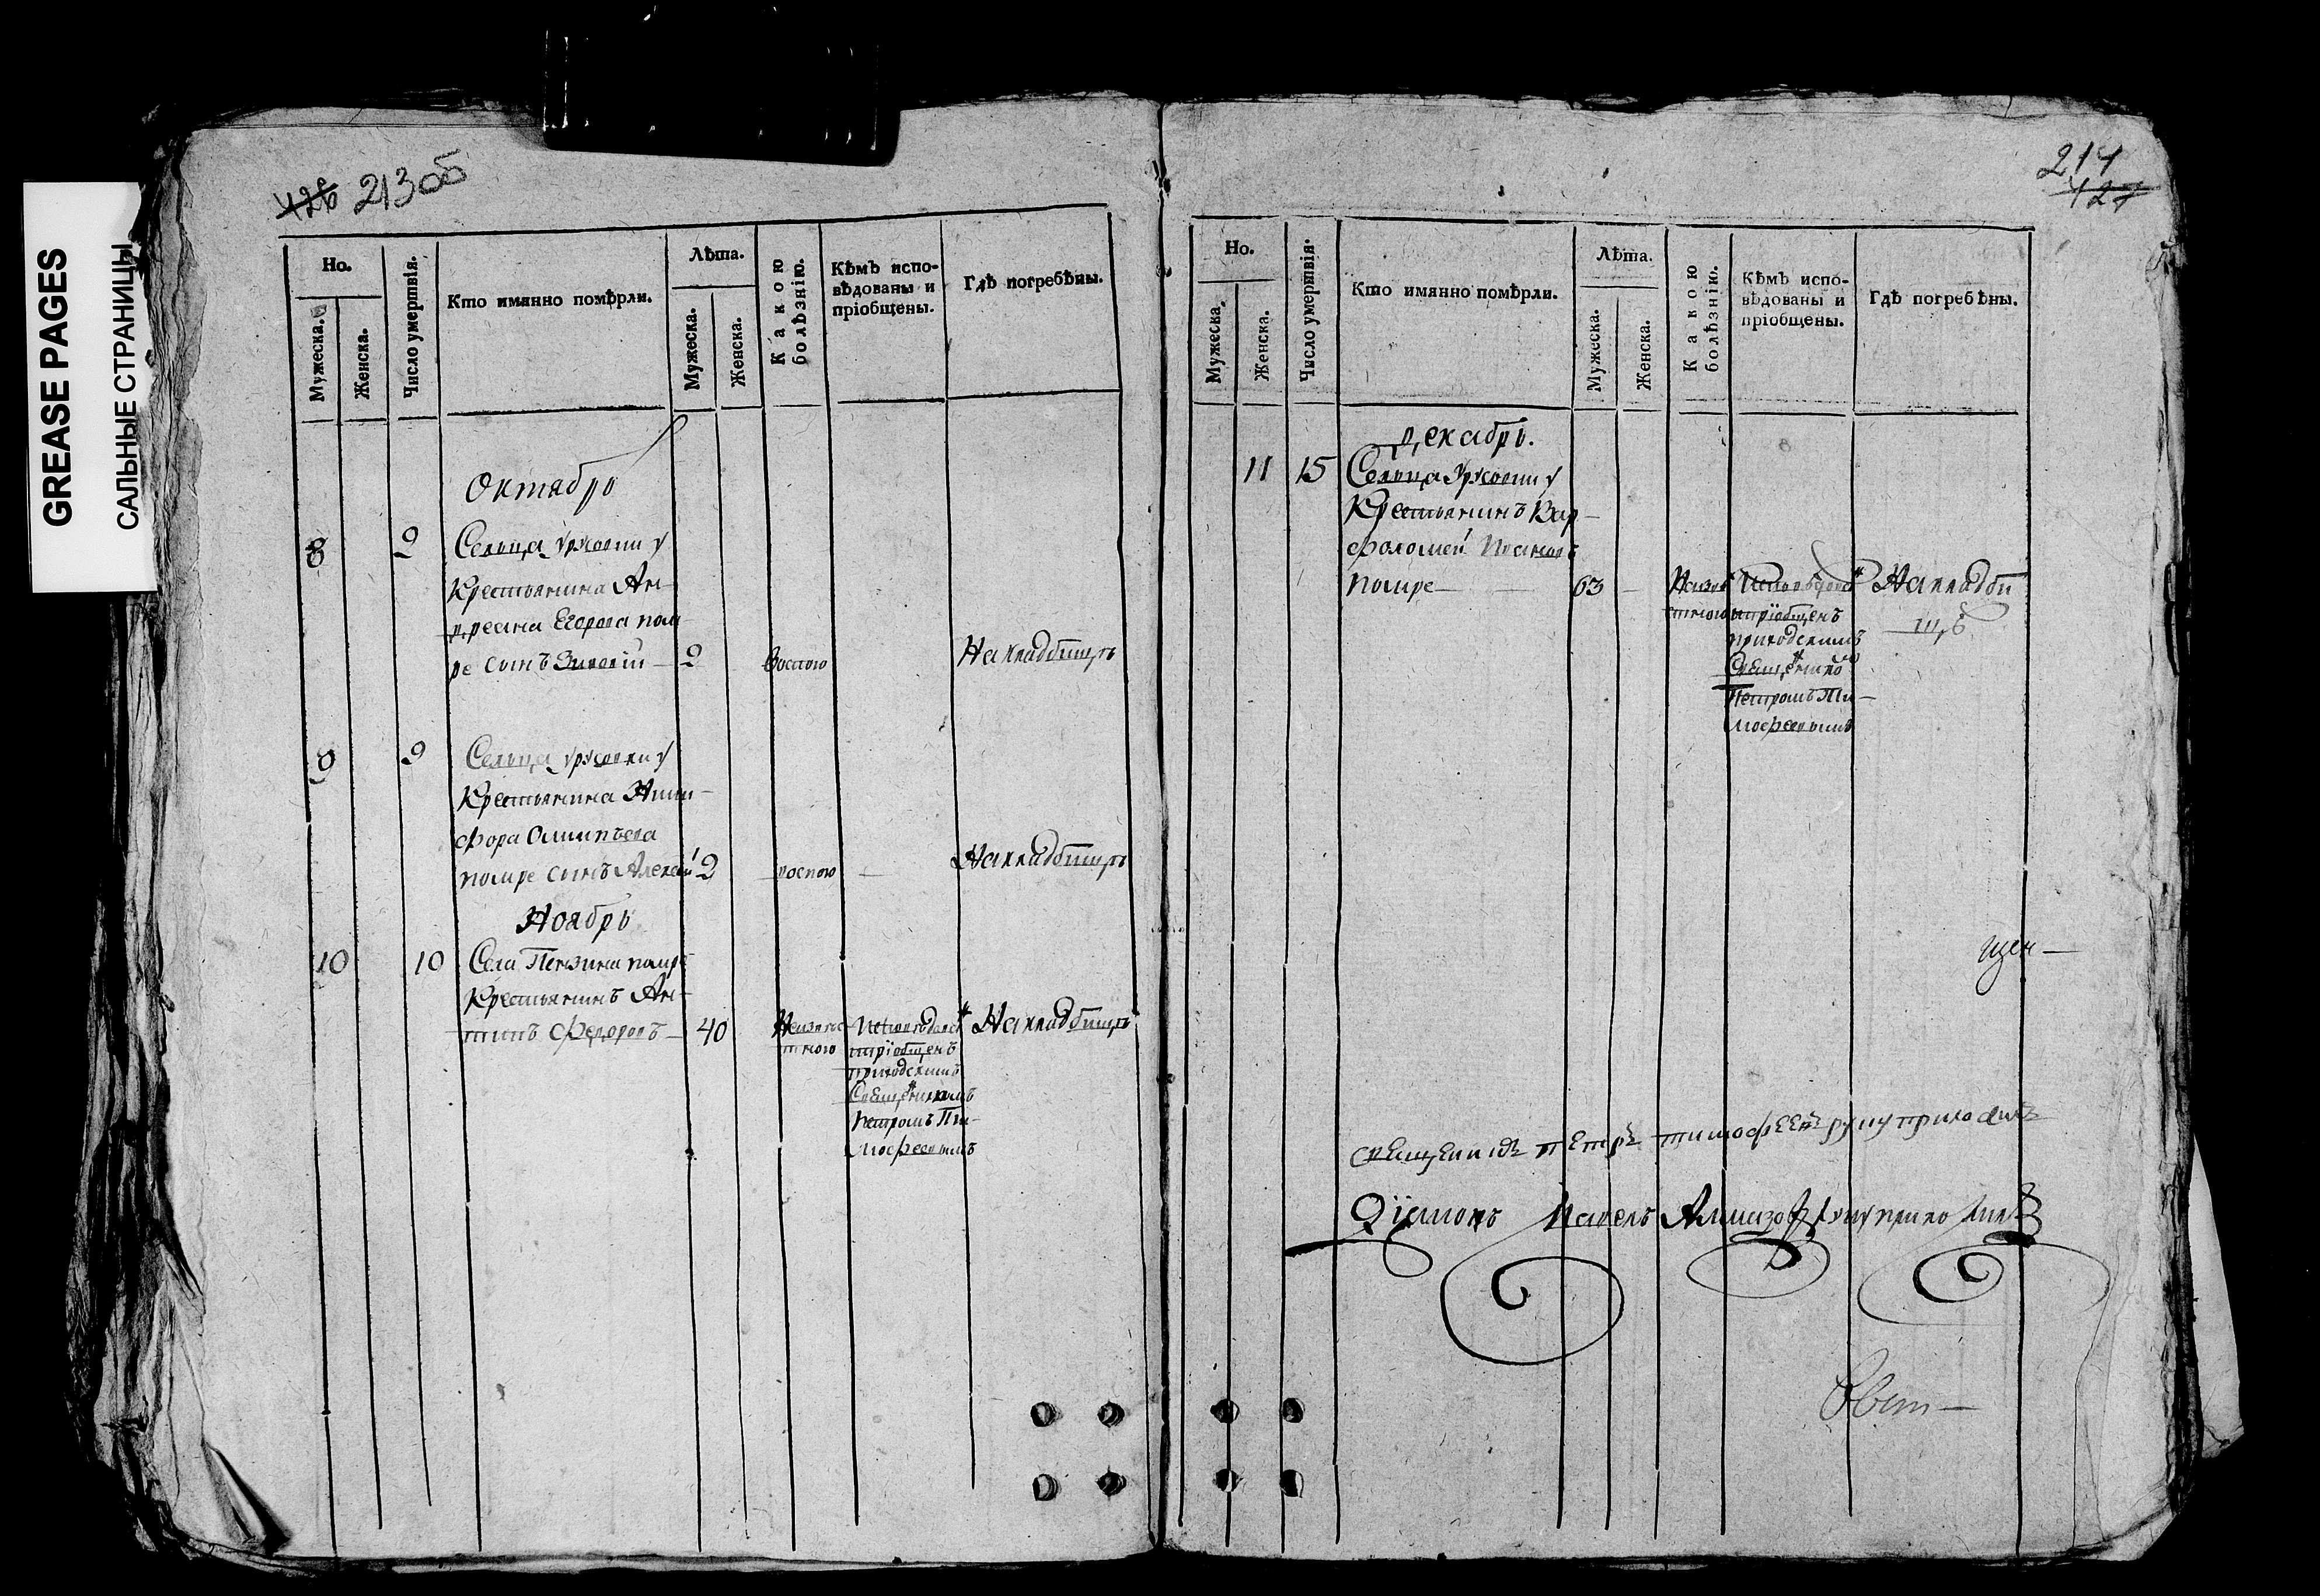 GREASE PAGES
САЛЬНЫЕ СТРАНИЦЫ
426 213об
Но.
Мужеска.
Женска.
Число умертвія.
Кто имянно помѣрли.
Лѣта.
Мужеска.
Женска.
Какою
болѣзнію.
Кѣмъ испо-
вѣдованы и
пріобщены.
Гдѣ погребѣны.
Октябрь
8 9 Сельца
Крестьянина Ан-
дреяна Егорова пом
ре сынъ 2 Воспою На кладбищѣ
9 9 Сельца
Крестьянина Ники-
фора
помре сынъ Алексѣй 2 воспою На кладбищѣ
Ноябрь
10 10 Села Пензина помре
Крестьянинъ Ан-
типъ Федоровъ 40 Неизвѣс На кладбищѣ
тного пріобщенъ
приходскимъ
Священникомъ
Петромъ Ти-
мофеевымъ
214
427
Но.
Мужеска.
Женска.
Число умертвія.
Кто имянно помѣрли.
Лѣта.
Мужеска.
Женска.
Какою
болѣзнію.
Кѣмъ испо-
вѣдованы и
пріобщены.
Гдѣ погребѣны.
Декабрь.
11 15 Сельца
Крестьянинъ Вар-
фоломей Ивановъ
помре 63 Неизвѣ На кладби
стною ипріобщенъ щѣ
приходскимъ
Священнико
Петромъ Ти-
мофеевымъ
щен-
священникъ петръ тимофеевъ руку приложилъ
Діаконъ Павелъ Алмазовъ руку приложилъ